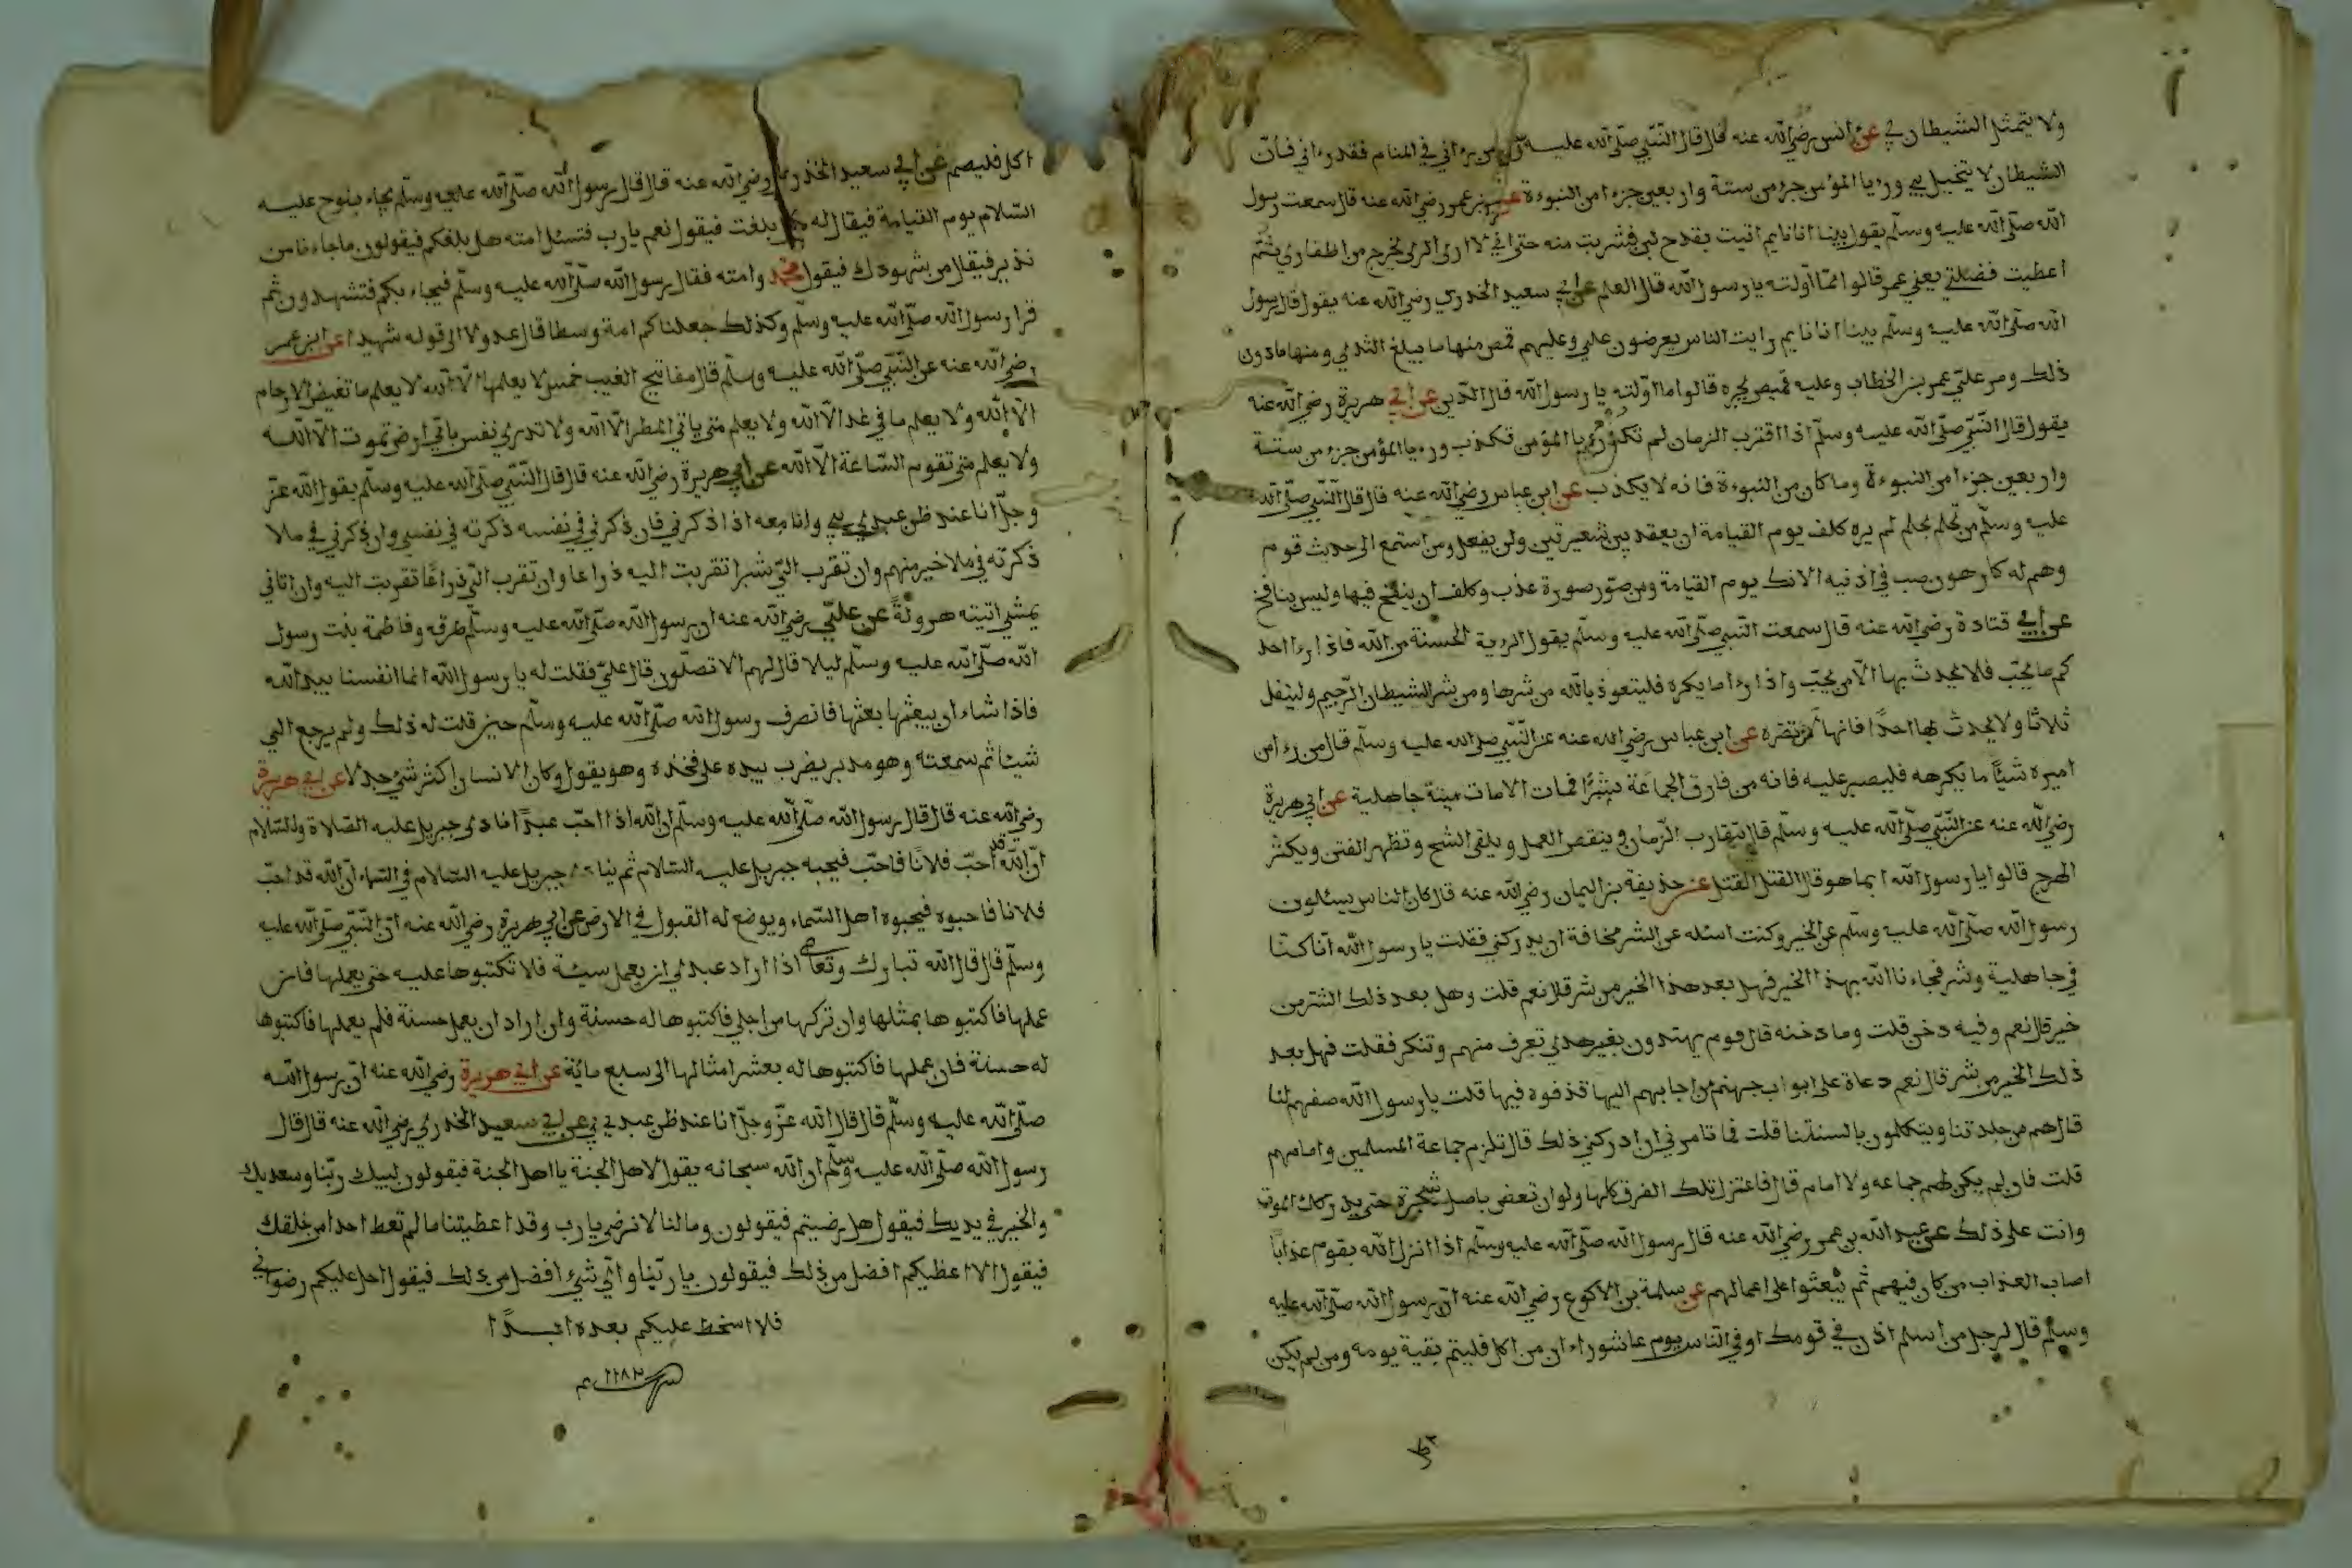 ولا يتمثل الشيطان بي عن انس رضي الله عنه قال قال النبي صلى الله عليه من رءاني في المنام فقد رءاني فان
الشيطان لا يتخيل بي ورءيا المؤمن جزء من ستة واربعين جزءا من النبوءة عن بن عمر رضي الله عنه قال سمعت رسول
الله صلى الله عليه وسلم يقول بينا انا نايم اتيت بقدح لبن فشربت منه حتى اني لا ارى الري يخرج من اظفاري ثم
اعطيت فضلتي يعني عمر قالوا فما اولته يا رسول الله قال العلم عن ابي سعيد الخدري رضي الله عنه يقول قال رسول
الله صلى الله عليه وسلم بينا انا نايم رايت الناس يعرضون علي وعليهم قمص منها ما يبلغ الثدي ومنها ما دون
ذلك ومر علي عمر بن الخطاب وعليه قميص يجره قالوا ما اولته يا رسول الله قال الدين عن ابي هريرة رضي الله عنه
يقول قال النبي صلى الله عليه وسلم اذا اقترب الزمان لم تكد رءيا المؤمن تكذب ورءيا المؤمن جزء من ستة
واربعين جزءا من النبوءة وما كان من النبوءة فانه لا يكذب عن ابن عباس رضي الله عنه قال قال النبي صلى الله
عليه وسلم من تحلم بحلم لم يره كلف يوم القيامة ان يعقد بين شعيرتين ولن يفعل ومن استمع الى حديث قوم
وهم له كارهون صب في اذنيه الانك يوم القيامة ومن صور صورة عذب وكلف ان ينفخ فيها وليس بنافخ
عن ابي قتادة رضي الله عنه قال سمعت النبي صلى الله عليه وسلم يقول الروية الحسنة من الله فاذا رءا احد
كم ما يحب فلا يحدث بها الا من يحب واذا رءا ما يكره فليتعوذ بالله من شرها ومن شر الشيطان الرجيم وليتفل
ثلاثا ولا يحدث بها احدا فانها لن تضره عن ابن عباس رضي الله عنه عن النبي صلى الله عليه وسلم قال من رءا من
اميره شيئا ما يكرهه فليصبر عليه فانه من فارق الجماعة شبرا فمات الا مات ميتة جاهلية عن ابي هريرة
رضي الله عنه عن النبي صلى الله عليه وسلم قال يتقارب الزمان وينقص العمل ويلقى الشح وتظهر الفتن ويكثر
الهرج قالوا يا رسول الله ايما هو قال القتل القتل عن حذيفة بن اليمان رضي الله عنه قال كان الناس يسئلون
رسول الله صلى الله عليه وسلم عن الخير وكنت اسئله عن الشر مخافة ان يدركني فقلت يا رسول الله انا كنا
في جاهلية وشر فجاءنا الله بهذا الخير فهل بعد هذا الخير من شر قال نعم قلت وهل بعد ذلك الشر من
خير قال نعم وفيه دخن قلت وما دخنه قال قوم يهتدون بغير هدي تعرف منهم وتنكر فقلت فهل بعد
ذلك الخير من شر قال نعم دعاة على ابواب جهنم من اجابهم اليها قذفوه فيها قلت يا رسول الله صفهم لنا
قال هم من جلدتنا ويتكلمون بالسنتنا قلت فما تامرني ان ادركني ذلك قال تلزم جماعة المسلمين وامامهم
قلت فان لم يكن لهم جماعه ولا امام قال فاعتزل تلك الفرق كلها ولو ان تعض باصل شجرة حتى يدركك الموت
وانت على ذلك عن عبد الله بن عمر رضي الله عنه قال رسول الله صلى الله عليه وسلم اذا انزل الله بقوم عذابا
اصاب العذاب من كان فيهم ثم يبعثوا على اعمالهم عن سلمة بن الاكوع رضي الله عنه ان رسول الله صلى الله عليه
وسلم قال لرجل من اسلم اذن في قومك او في الناس يوم عاشوراء ان من اكل فليتم بقية يومه ومن لم يكن
اكل فليصم عن ابي سعيد الخذري رضي الله عنه قال قال رسول الله صلى الله عليه وسلم يجاء بنوح عليه
السلام يوم القيامة فيقال له هل بلغت فيقول نعم يا رب فتسئل امته هل بلغكم فيقولون ما جاءنا من
نذير فيقال من شهودك فيقول محمد وامته فقال رسول الله صلى الله عليه وسلم فيجاء بكم فتشهدون ثم
قرا رسول الله صلى الله عليه وسلم وكذلك جعلناكم امة وسطا قال عدولا الى قوله شهيدا عن ابن عمر
رضي الله عنه عن النبي صلى الله عليه وسلم قال مفاتيح الغيب خمس لا يعلمها الا الله لا يعلم ما تغيض الارحام
الا الله ولا يعلم ما في غد الا الله ولا يعلم متى ياتي المطر الا الله ولا تدري نفس باي ارض تموت الا الله
ولا يعلم متى تقوم الساعة الا الله عن ابي هريرة رضي الله عنه قال قال النبي صلى الله عليه وسلم يقول الله عز
وجل انا عند ظن عبدي بي وانا معه اذا ذكرني فان ذكرني في نفسه ذكرته في نفسي وان ذكرني في ملا
ذكرته في ملا خير منهم وان تقرب الي شبرا تقربت اليه ذراعا وان تقرب الي ذراعا تقربت اليه وان اتاني
يمشي اتيته هرولة عن علي رضي الله عنه ان رسول الله صلى الله عليه وسلم طرقه وفاطمة بنت رسول
الله صلى الله عليه وسلم ليلا قال لهم الا تصلون قال علي فقلت له يا رسول الله انما انفسنا بيد الله
فاذا شاء ان يبعثها بعثها فانصرف رسول الله صلى الله عليه وسلم حين قلت له ذلك ولم يرجع الي
شيئا ثم سمعته وهو مدبر يضرب بيده على فخذه وهو يقول وكان الانسان اكثر شيء جدلا عن ابي هريرة
رضي الله عنه قال قال رسول الله صلى الله عليه وسلم ان الله اذا احب عبدا نادى جبريل عليه الصلاة والسلام
ان الله قد احب فلانا فاحب فيحبه جبريل عليه السلام ثم ينادي جبريل عليه السلام في السماء ان الله قد احب
فلانا فاحبوه فيحبوه اهل السماء ويوضع له القبول في الارض عن ابي هريرة رضي الله عنه ان النبي صلى الله عليه
وسلم قال قال الله تبارك وتعالى اذا اراد عبدي ان يعمل سيئة فلا تكتبوها عليه حتى يعملها فان
عملها فاكتبوها بمثلها وان تركها من اجلي فاكتبوها له حسنة وان اراد ان يعمل حسنة فلم يعملها فاكتبوها
له حسنة فان عملها فاكتبوها له بعشر امثالها الى سبع مائة عن ابي هريرة رضي الله عنه ان رسول الله
صلى الله عليه وسلم قال قال الله عز وجل انا عند ظن عبدي بي عن ابي سعيد الخدري رضي الله عنه قال قال
رسول الله صلى الله عليه وسلم ان الله سبحانه يقول لاهل الجنة يا اهل الجنة فيقولون لبيك ربنا وسعديك
والخير في يديك فيقول هل رضيتم فيقولون وما لنا لا نرضى يا رب وقد اعطيتنا ما لم تعط احدا من خلقك
فيقول الا اعطيكم افضل من ذلك فيقولون يا ربنا واي شيء افضل من ذلك فيقول احل عليكم رضواني
فلا اسخط عليكم بعده ابدا